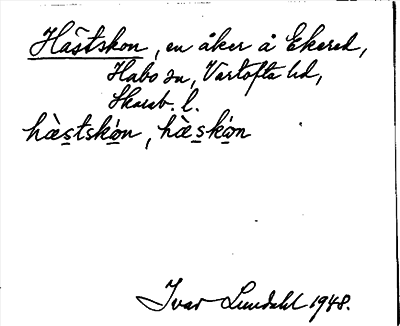 Hästskon, en åker å Ekered,
Habo sn, Vartofta hd,
Skarab. l.
hæ̀stskón, hæ̀skón
Ivar Lundahl 1948.